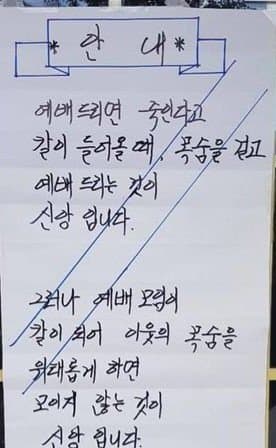 * 안 내 *
예배 드리면 죽인다고
칼이 들어올 때, 목숨을 걸고
예배 드리는 것이
신앙 입니다.
그러나 예배 모임이
칼이 되어 이웃의 목숨을
위태롭게 하면
모이지 않는 것이
신앙 입니다.